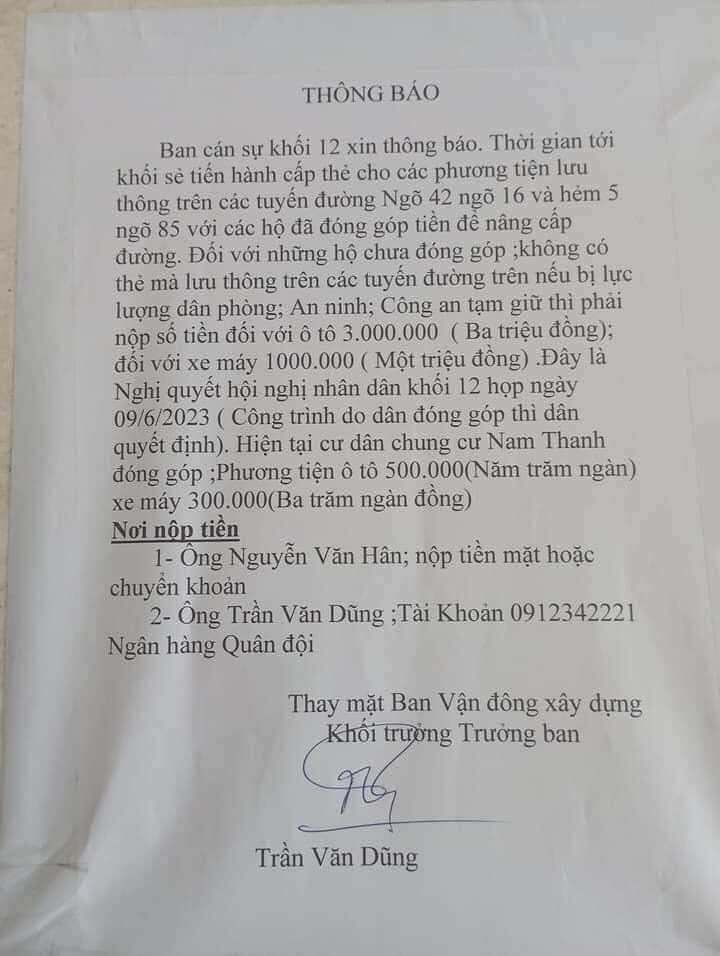 THÔNG BÁO
Ban cán sự khối 12 xin thông báo. Thời gian tới
khối sẻ tiến hành cấp thẻ cho các phương tiện lưu
thông trên các tuyến đường Ngõ 42 ngõ 16 và hẻm 5
ngõ 85 với các hộ đã đóng góp tiền để nâng cấp
đường. Đối với những hộ chưa đóng góp ;không có
thẻ mà lưu thông trên các tuyến đường trên nếu bị lực
lượng dân phòng; An ninh; Công an tạm giữ thì phải
nộp số tiền đối với ô tô 3.000.000 ( Ba triệu đồng);
đối với xe máy 1000.000 ( Một triệu đồng) .Đây là
Nghị quyết hội nghị nhân dân khối 12 họp ngày
09/6/2023 ( Công trình do dân đóng góp thì dân
quyết định). Hiện tại cư dân chung cư Nam Thanh
đóng góp ;Phương tiện ô tô 500.000(Năm trăm ngàn)
xe máy 300.000(Ba trăm ngàn đồng)
Nơi nộp tiền
1- Ông Nguyễn Văn Hân; nộp tiền mặt hoặc
chuyển khoản
2- Ông Trần Văn Dũng ;Tài Khoản 0912342221
Ngân hàng Quân đội
Thay mặt Ban Vận đông xây dựng
Khối trưởng Trưởng ban
Trần Văn Dũng